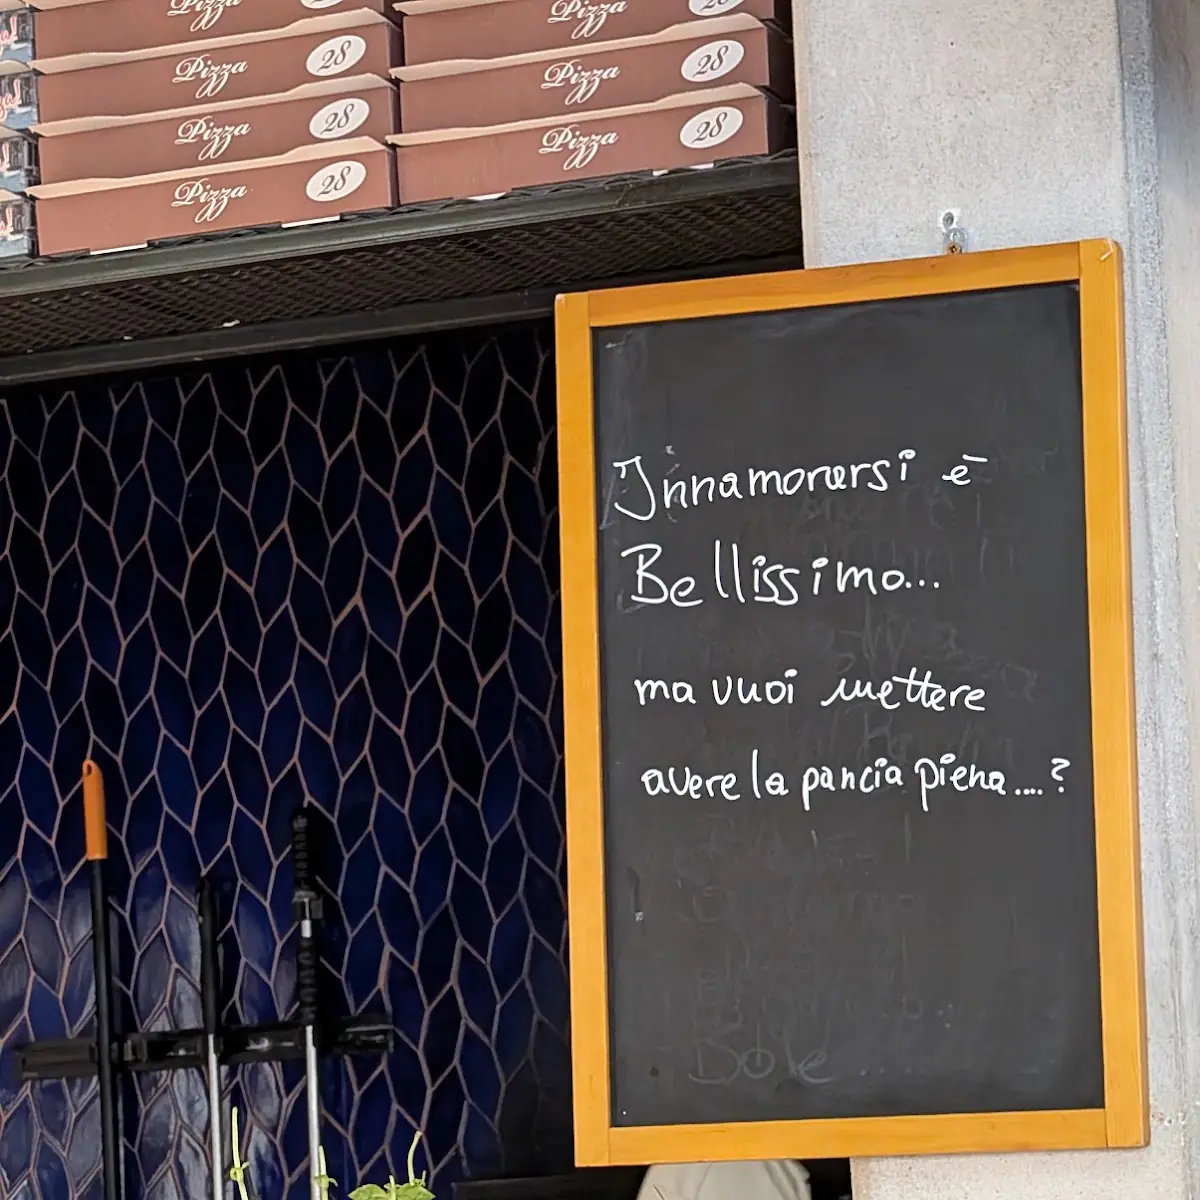 Pizza
Pizza
Pizza 28
Pizza 28
Pizza 28
Pizza 28
Pizza 28
Pizza 28
Innamorarsi è
Bellissimo...
ma vuoi mettere
avere la pancia piena....?